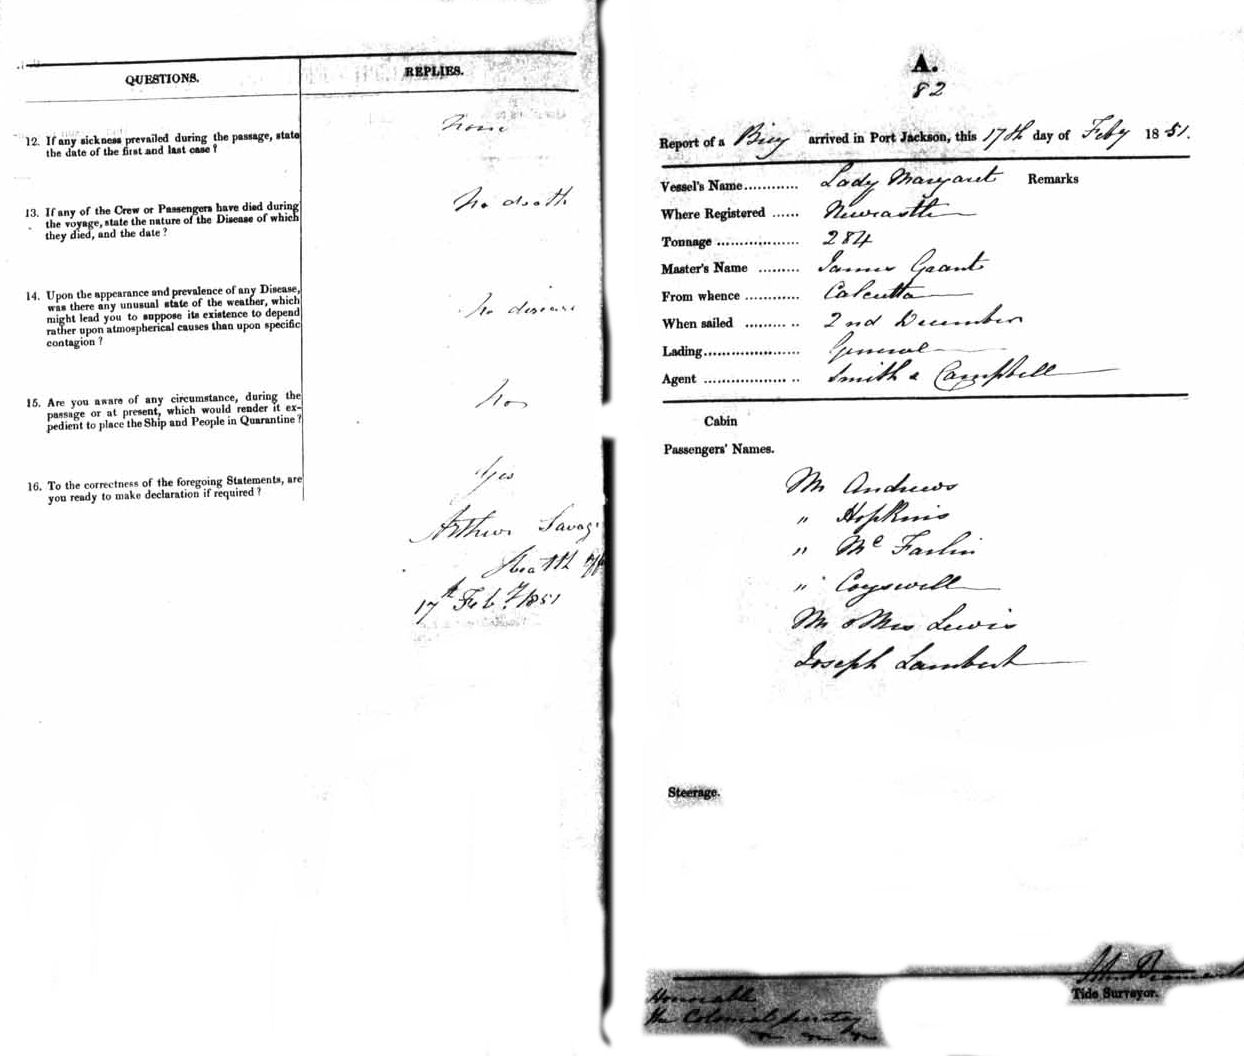 QUESTIONS.
REPLIES.
12. If any sickness prevailed during the passage, state
the date of the first and last case ?
None
13. If any of the Crew or Passengers have died during
the voyage, state the nature of the Disease of which
they died, and the date ?
No death
14. Upon the appearance and prevalence of any Disease,
was there any unusual state of the weather, which
might lead you to suppose its existence to depend
rather upon atmospherical causes than upon specific
contagion ?
No disease
15. Are you aware of any circumstance, during the
passage or at present, which would render it ex-
pedient to place the Ship and People in Quarantine ?
No
16. To the correctness of the foregoing Statements, are
you ready to make declaration if required ?
Yes
Arthur Savag
Health Off
17th Feby. 1851
A.
82
Report of a Brig arrived in Port Jackson, this 17th day of Feby 1851.
Vessel's Name............ Lady Margaret Remarks
Where Registered ...... Newcastle
Tonnage .................. 284
Master's Name ......... James Grant
From whence ............ Calcutta
When sailed ......... .. 2nd December
Lading..................... General
Agent .................. .. Smith & Campbell
Cabin
Passengers' Names.
Mr Andrews
" Hopkins
" Mc Farlin
" Coyswell
Mr & Mrs Lewis
Joseph Lambert
Steerage.
John
Tide Surveyor.
Honorable
the Colonial Secretary